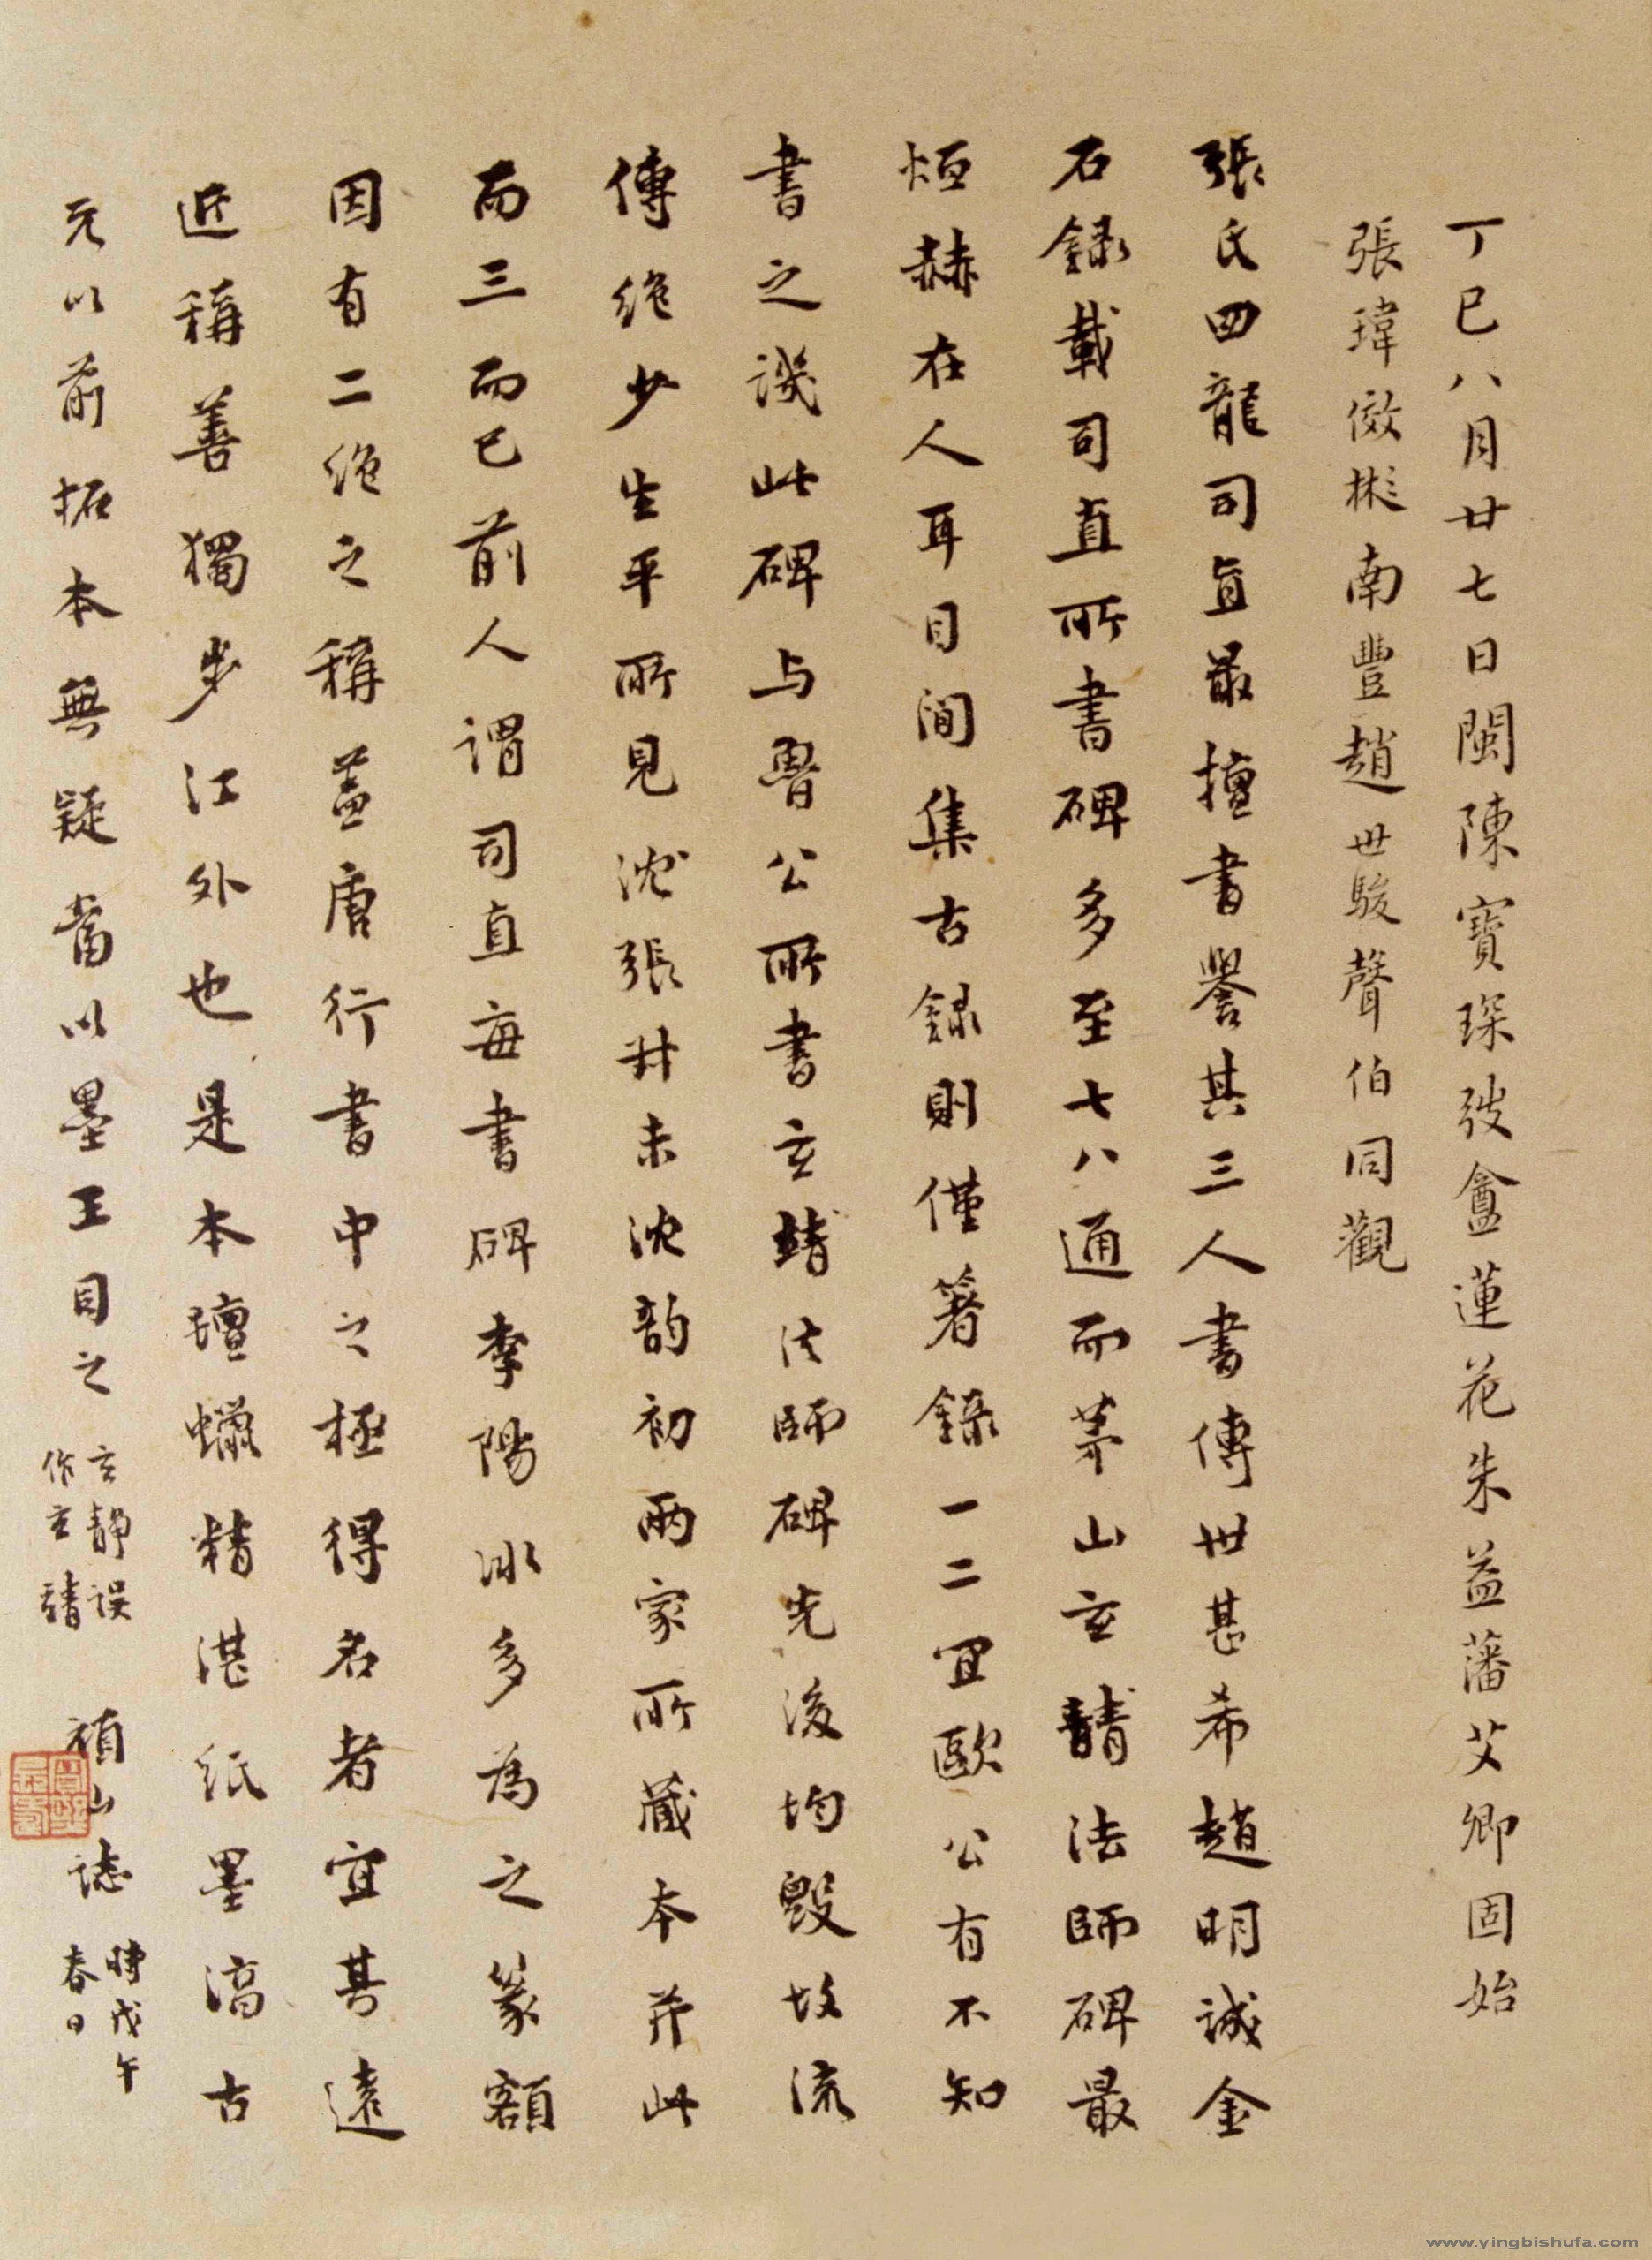 丁巳八月廿七日閩陳寶琛弢盦蓮花朱益藩艾卿固始
張瑋傚彬南豐趙世駿聲伯同觀
張氏四龍司直最擅書譽其三人書傳世甚希趙明誠金
石錄載司直所書碑多至七八通而茅山玄靜法師碑最
烜赫在人耳目間集古錄則僅著錄一二宜歐公有不知
書之譏此碑与魯公所書玄靖法師碑先後均毀故流
傳絶少生平所見沈張井未沈韵初兩家所藏本并此
而三而已前人謂司直每書碑李陽冰多為之篆額
因有二絶之稱蓋唐行書中之極得名者宜其遠
近稱善獨步江外也是本璮蠟精湛紙墨渟古
元以前拓本無疑當以墨王目之 玄靜誤
作玄靖 碩山誌 時戊午
春日
www.yingbishufa.com